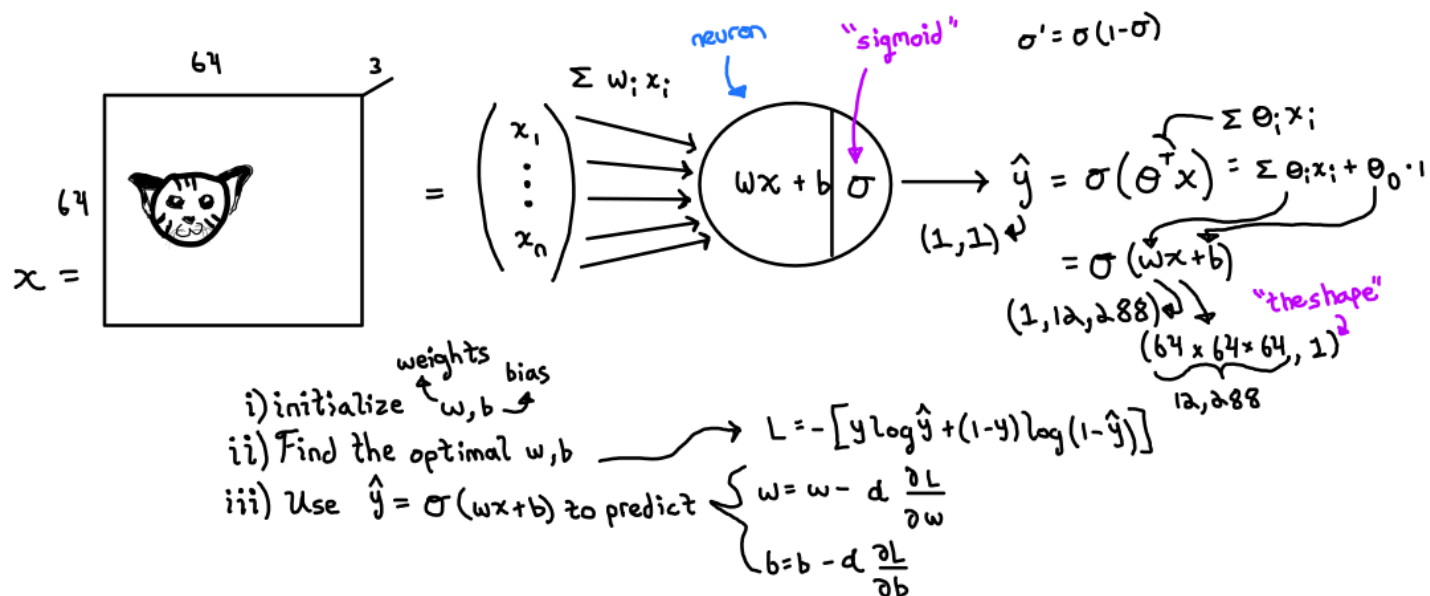 64
3
64
x =
=
x₁
⋮
xₙ
Σ wᵢ xᵢ
neuron
"sigmoid"
σ' = σ(1-σ)
wx + b | σ
ŷ = σ(θᵀx) = Σ θᵢxᵢ + θ₀ · 1
Σ θᵢ xᵢ
(1,1)
= σ(wx+b)
(1,12,288)
"the shape"
(64 × 64 × 64, 1)
12,288
weights
bias
i) initialize w,b
ii) Find the optimal w,b
L = -[y log ŷ + (1-y) log(1-ŷ)]
iii) Use ŷ = σ(wx+b) to predict
w = w - α ∂L/∂w
b = b - α ∂L/∂b